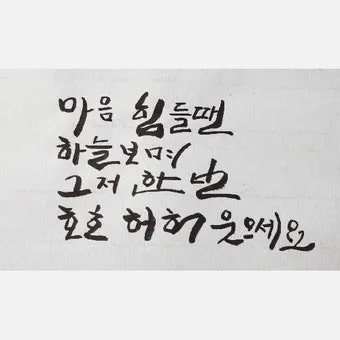 마음 힘들땐
하늘보며
그저 한 번
호호 허허 웃으세요